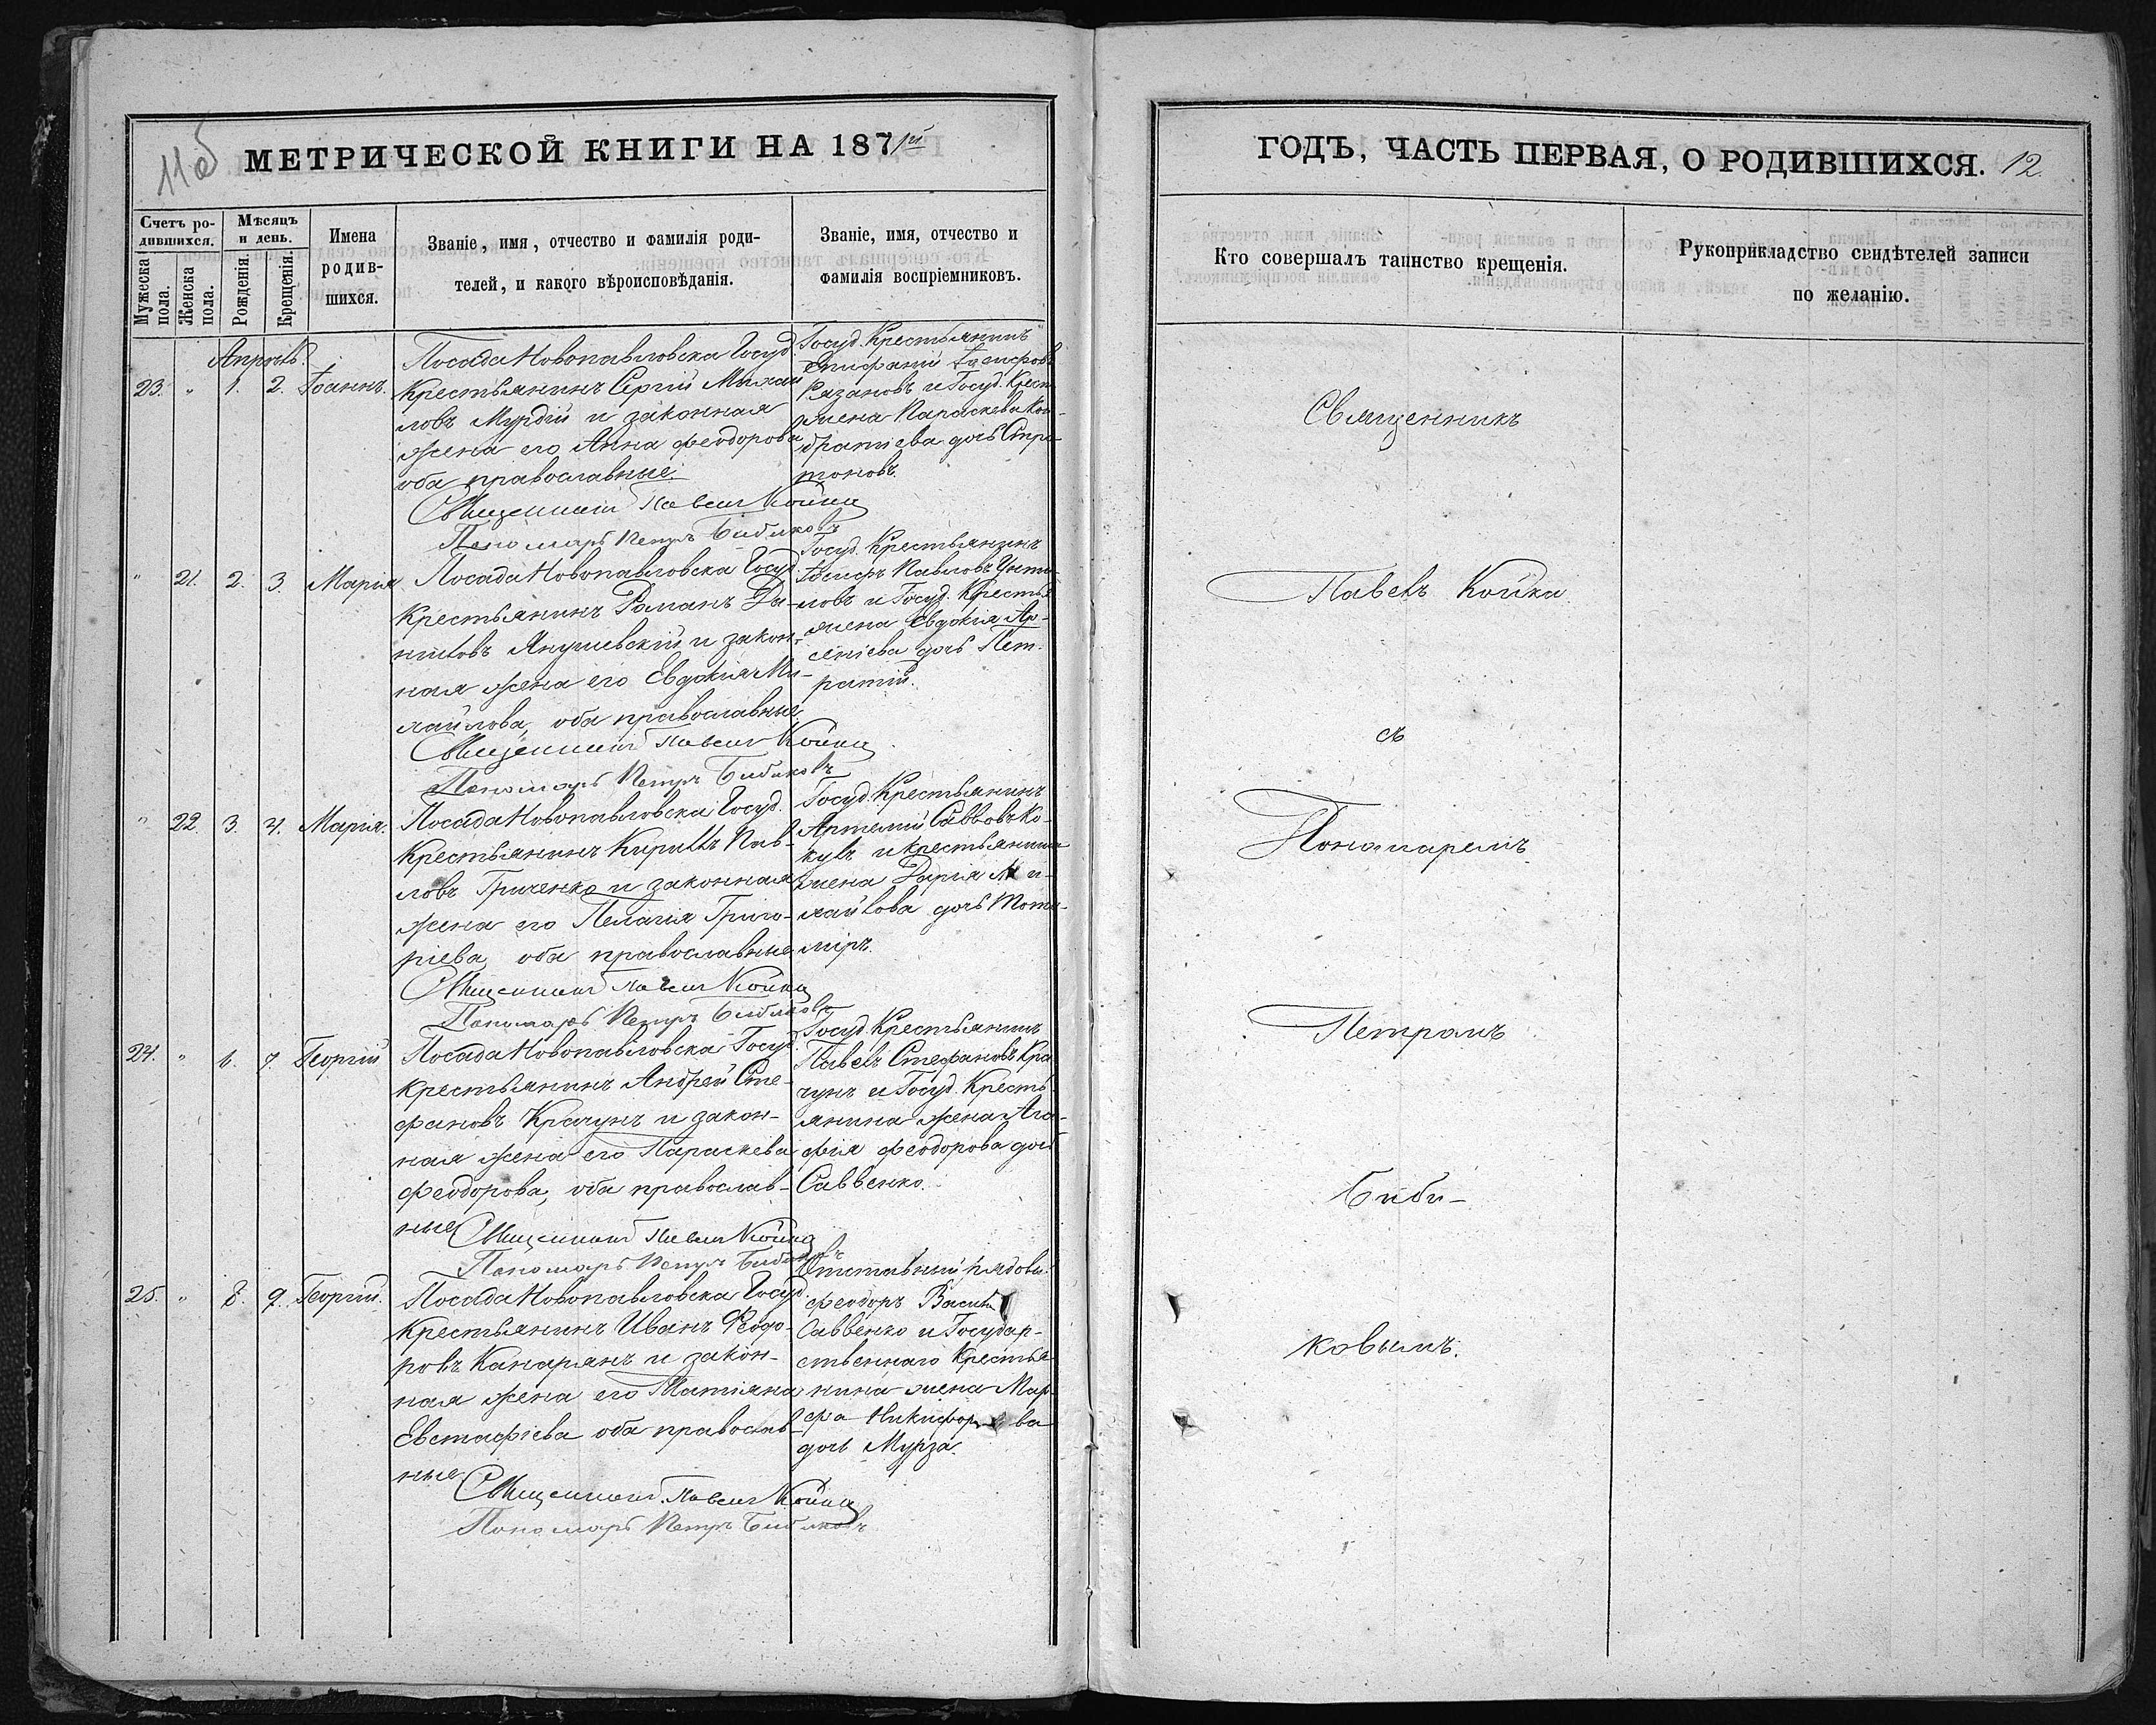 11об
МЕТРИЧЕСКОЙ КНИГИ НА 1871й
Счетъ ро-
дившихся.
Мужеска
пола.
Женска
пола.
Мѣсяцъ
и день.
Рожденія.
Крещенія.
Имена
родив-
шихся.
Званіе, имя, отчество и фамилія роди-
телей, и какого вѣроисповѣданія.
Званіе, имя, отчество и
фамилія воспріемниковъ.
Апрѣль.
23. " 1. 2. Іоаннъ.
Посада Новопавловска Госуд.
Крестьянинъ Сергій Михаи
ловъ Мурдій и законная
жена его Анна Феодорова
оба православные.
Священникъ Павелъ Койка
Пономарь Петръ Бибиковъ
Госуд. Крестьянинъ
Епифаній Іосифовъ
Рязановъ и Госуд. Крест.
жена Параскева Кон-
дратіева дочь Спри-
тоновъ.
" 21. 2. 3. Марія
Посада Новопавловска Госуд.
Крестьянинъ Романъ Да-
ниловъ Янушевскій и закон-
ная жена его Евдокія Ми-
хайлова, оба православные
Священникъ Павелъ Койка
Пономарь Петръ Бибиковъ
Госуд. Крестьянинъ
Іосифъ Павловъ
ловъ и Госуд. Крестья
жена Евдокія Ар-
сеніева дочь Пет-
ратій.
" 22. 3. 4. Марія.
Посада Новопавловска Госуд.
Крестьянинъ Кириллъ Пав-
ловъ Гриченко и законная
жена его Пелагія Григо-
ріева, оба православные
Священникъ Павелъ Койка
Пономарь Петръ Бибиковъ
Госуд. Крестьянинъ
Артемій Саввовъ Ко-
кулъ и крестьянина
жена Дарія Ми-
хайлова дочь Тоти-
міръ.
24. " 6. 7. Георгій
Посада Новопавловска Госуд.
Крестьянинъ Андрей Сте-
фановъ Крачунъ и закон-
ная жена его Параскева
Феодорова, оба православ-
ные
Священникъ Павелъ Койка
Пономарь Петръ Бибиковъ
Госуд. Крестьянинъ
Павелъ Стефановъ Кра
чунъ и Госуд. Кресть-
янина жена Ага-
фія Феодорова дочь
Саввенко.
25. " 8. 9. Георгій.
Посада Новопавловска Госуд.
Крестьянинъ Иванъ Феодо-
ровъ Канарянъ и закон-
ная жена его Татіяна
Евстафіева оба православ-
ные
Священникъ Павелъ Койка
Пономарь Петръ Бибиковъ
Отставный рядовы
Феодоръ Васил
Саввенко и Государ-
ственнаго Крестья
нина жена Мар-
фа Никифорова
дочь Мурза.
ГОДЪ, ЧАСТЬ ПЕРВАЯ, О РОДИВШИХСЯ. 12.
Кто совершалъ таинство крещенія.
Рукоприкладство свидѣтелей записи
по желанію.
Священникъ
Павелъ Койка
съ
Пономаремъ
Петромъ
Биби-
ковымъ.